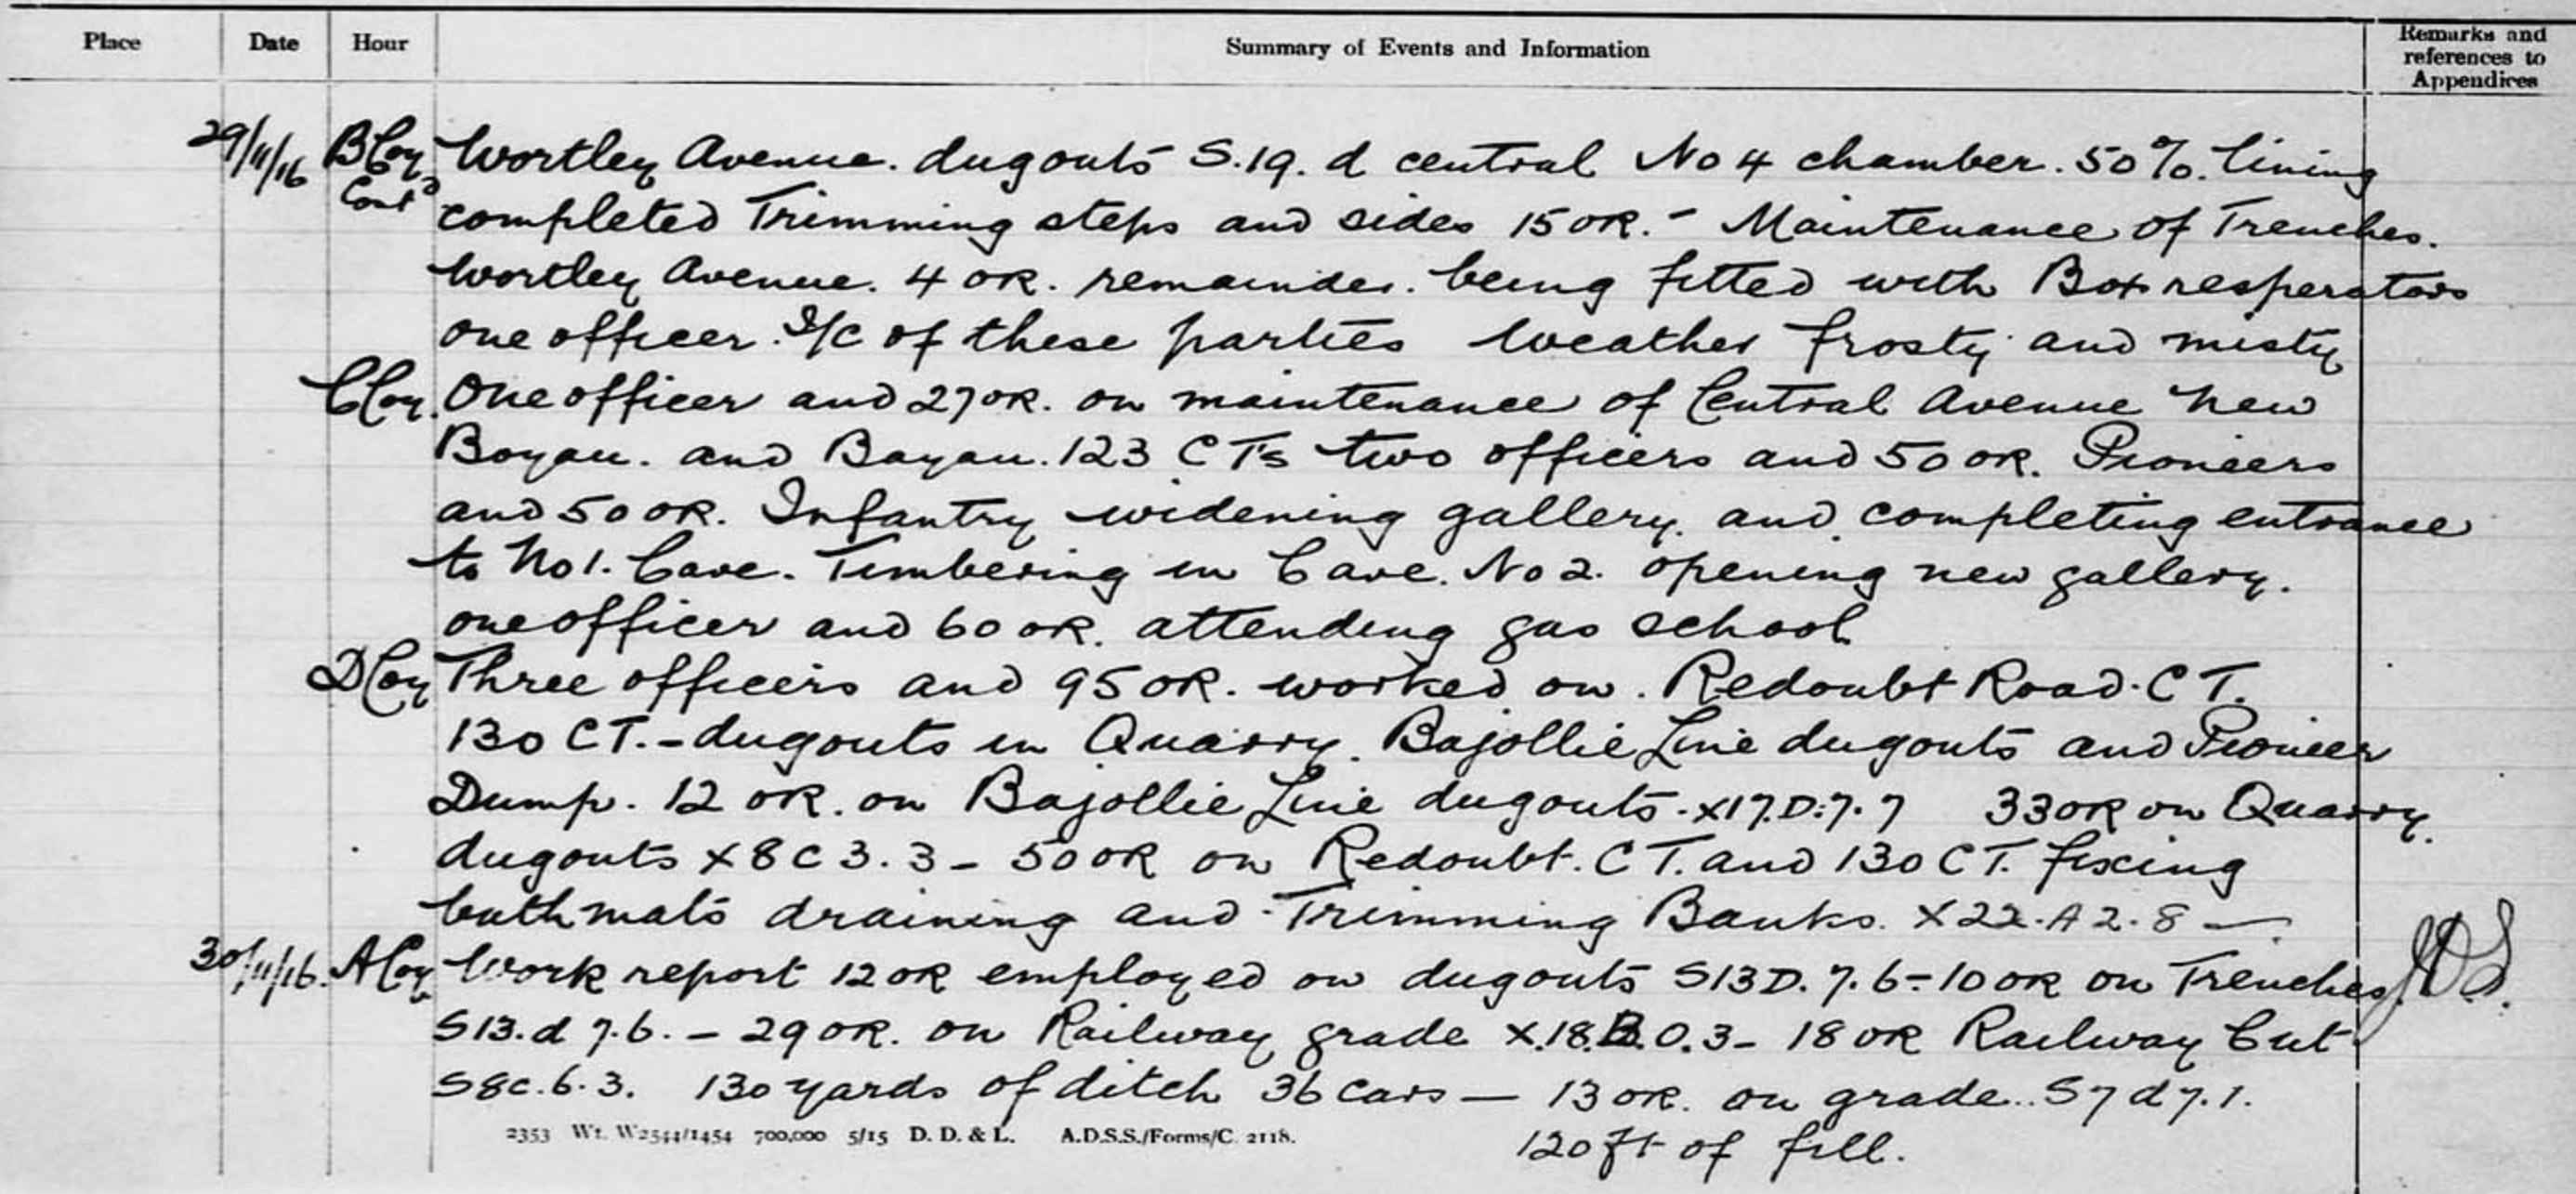 Place Date Hour Summary of Events and Information Remarks and references to Appendices
29/11/16 B Coy Wortley Avenue. dugouts S.19. d central No 4 chamber. 50%. lining
Cont'd completed Trimming steps and sides 15 OR. - Maintenance of Trenches.
Wortley Avenue. 4 OR. remainder. being fitted with Box resperators
one officer. I/C of these parties Weather frosty and misty
C Coy. One officer and 27 OR. on maintenance of Central Avenue New
Boyau. and Bayau. 123 CTs two officers and 50 OR. Pioneers
and 50 OR. Infantry widening gallery. and completing entrance
to No 1. Cave. Timbering in Cave. No 2. opening new gallery.
one officer and 60 OR. attending gas school
D Coy Three officers and 95 OR. worked on. Redoubt Road. CT.
130 CT. - dugouts in Quarry. Bajollie Line dugouts and Pioneer
Dump. 12 OR. on Bajollie Line dugouts. X17.D.7.7 33 OR on Quarry.
dugouts X8C3.3 - 50 OR on Redoubt. CT. and 130 CT. fixing
bath mats draining and Trimming Banks. X22.A2.8 —
30/11/16. A Coy Work report 12 OR employed on dugouts S13D.7.6 - 10 OR on Trenches. JDS.
S13.d 7.6. - 29 OR. on Railway grade X.18.B.0.3 - 18 OR Railway Cut
S8c.6.3. 130 yards of ditch 36 cars — 13 OR. on grade.. S7d7.1.
2353 Wt. W2544/1454 700,000 5/15 D. D. & L. A.D.S.S./Forms/C. 2118.
120 ft of fill.